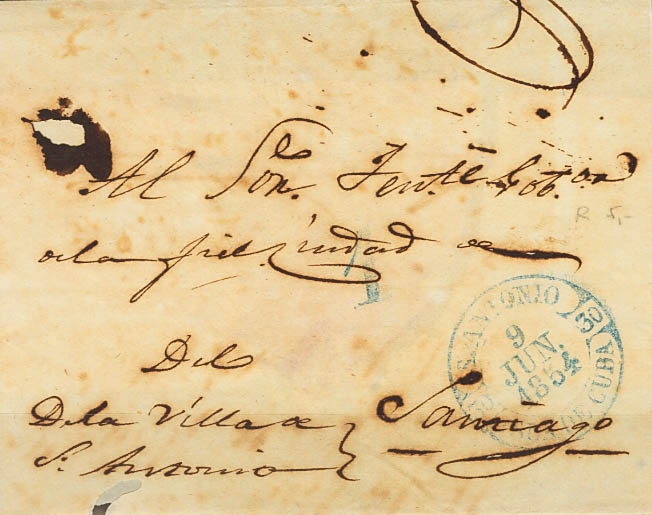 Al Sor. Tente. Gobor.
de la fiel ciudad de
R 5,-
1
S. ANTONIO
30
9
JUN.
1854
DE CUBA
Santiago
Del
De la Villa de
S. Antonio